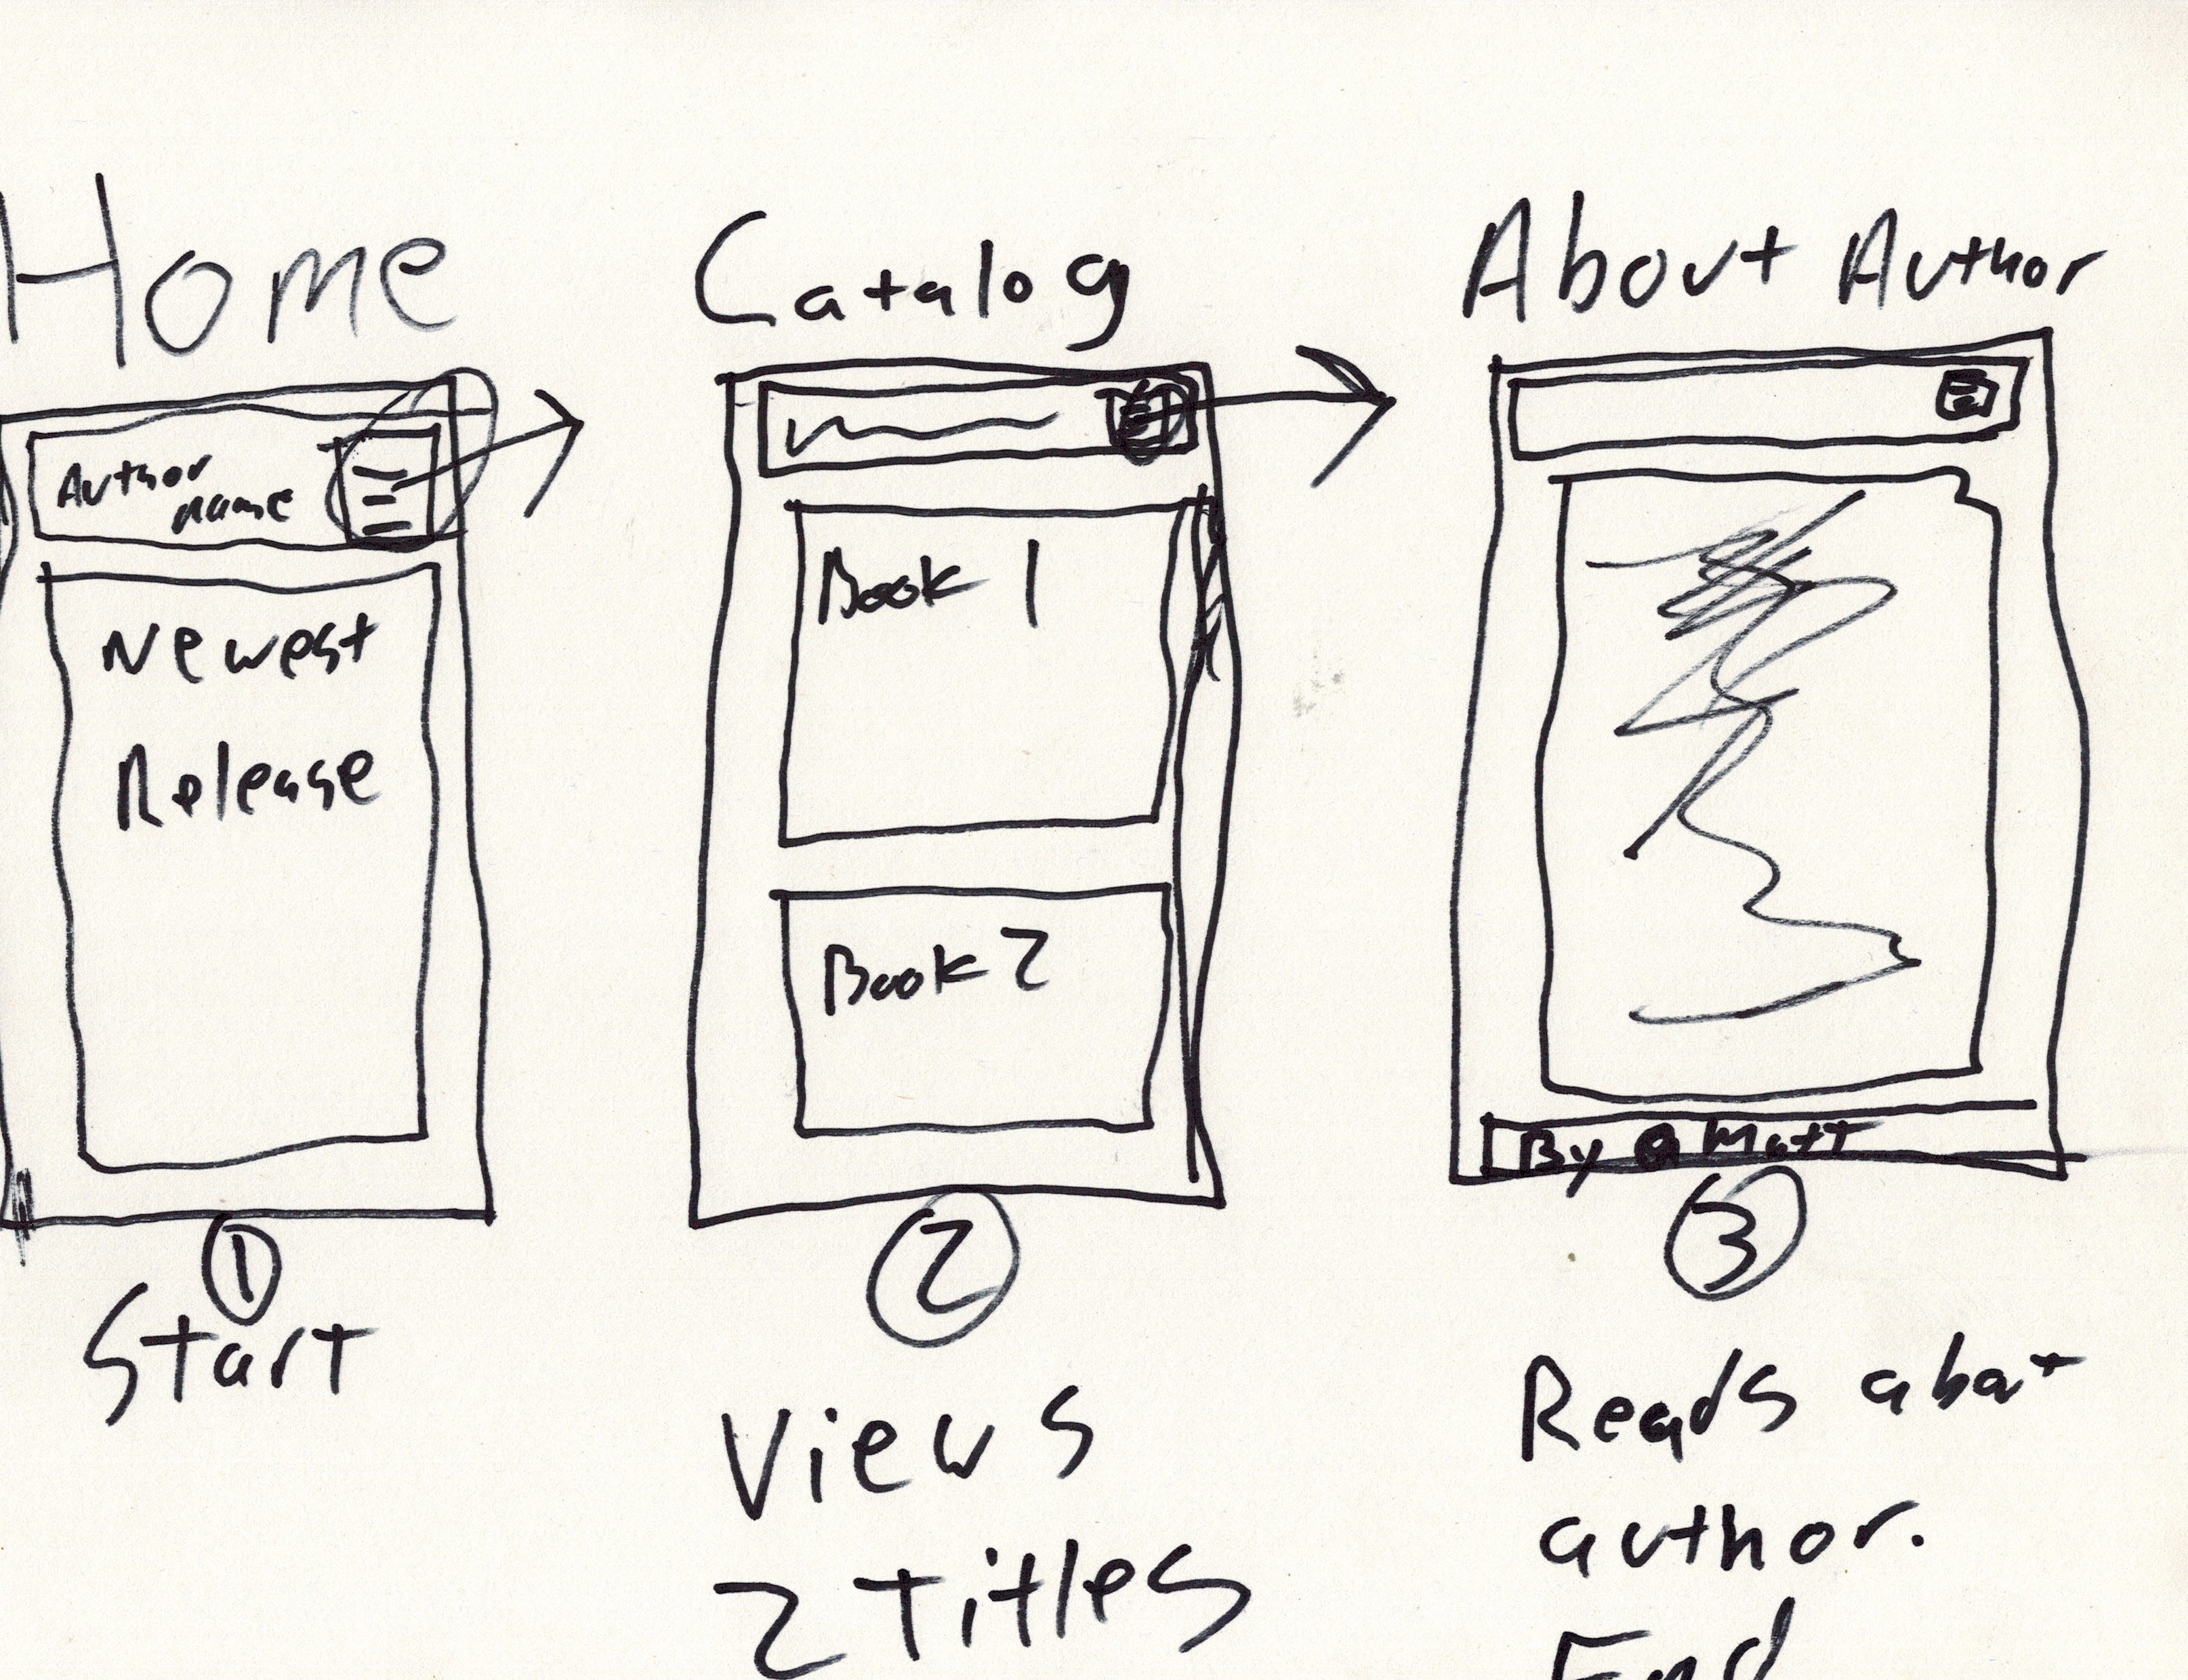 Home
Author
name
Newest
Release
1
Start
Catalog
Book 1
Book 2
2
Views
2 Titles
About Author
By @Matt
3
Reads about
author.
End